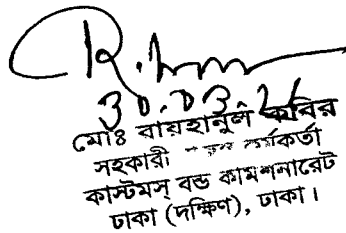 30.03.21
মোঃ রায়হানুল কবির
সহকারী কর্মকর্তা
কাস্টমস্ বন্ড কমিশনারেট
ঢাকা (দক্ষিণ), ঢাকা।